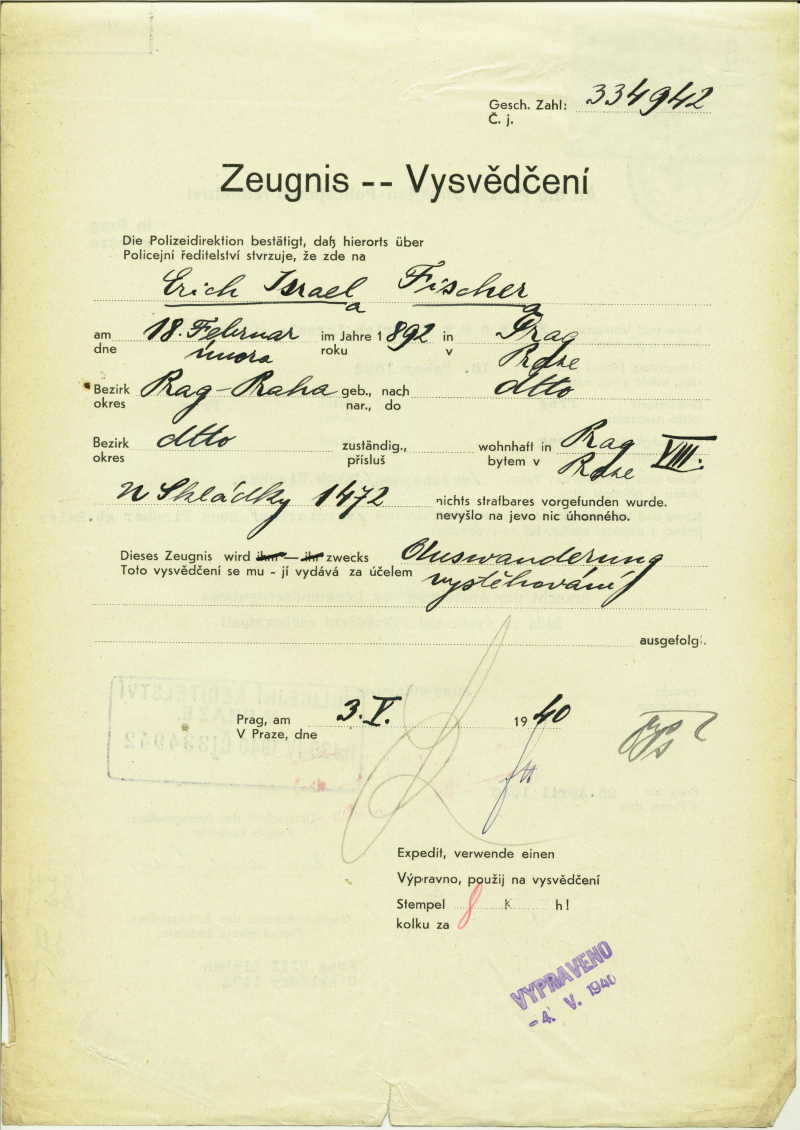 Gesch. Zahl: 334942
Č. j.
Zeugnis -- Vysvědčení
Die Polizeidirektion bestätigt, daß hierorts über
Policejní ředitelství stvrzuje, že zde na
Erich Israel Fischer
a a
am 18. Februar im Jahre 1892 in Prag
dne února roku v Praze
Bezirk Prag-Praha geb., nach dtto
okres nar., do
Bezirk dtto zuständig., wohnhaft in Prag VIII.
okres přísluš bytem v Praze
Skládky 1472 nichts strafbares vorgefunden wurde.
nevyšlo na jevo nic úhonného.
Dieses Zeugnis wird ihm — ihr zwecks Auswanderung
Toto vysvědčení se mu - jí vydává za účelem vystěhování
ausgefolgt.
Prag, am 3. V. 1940
V Praze, dne
Expedit, verwende einen
Výpravno, použij na vysvědčení
Stempel 8 K h!
kolku za
VYPRAVENO
- 4. V. 1940